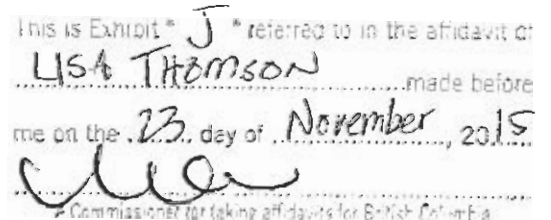 This is Exhibit "J" referred to in the affidavit of
LISA THOMSON made before
me on the 23 day of November, 2015
A Commissioner for taking affidavits for British Columbia